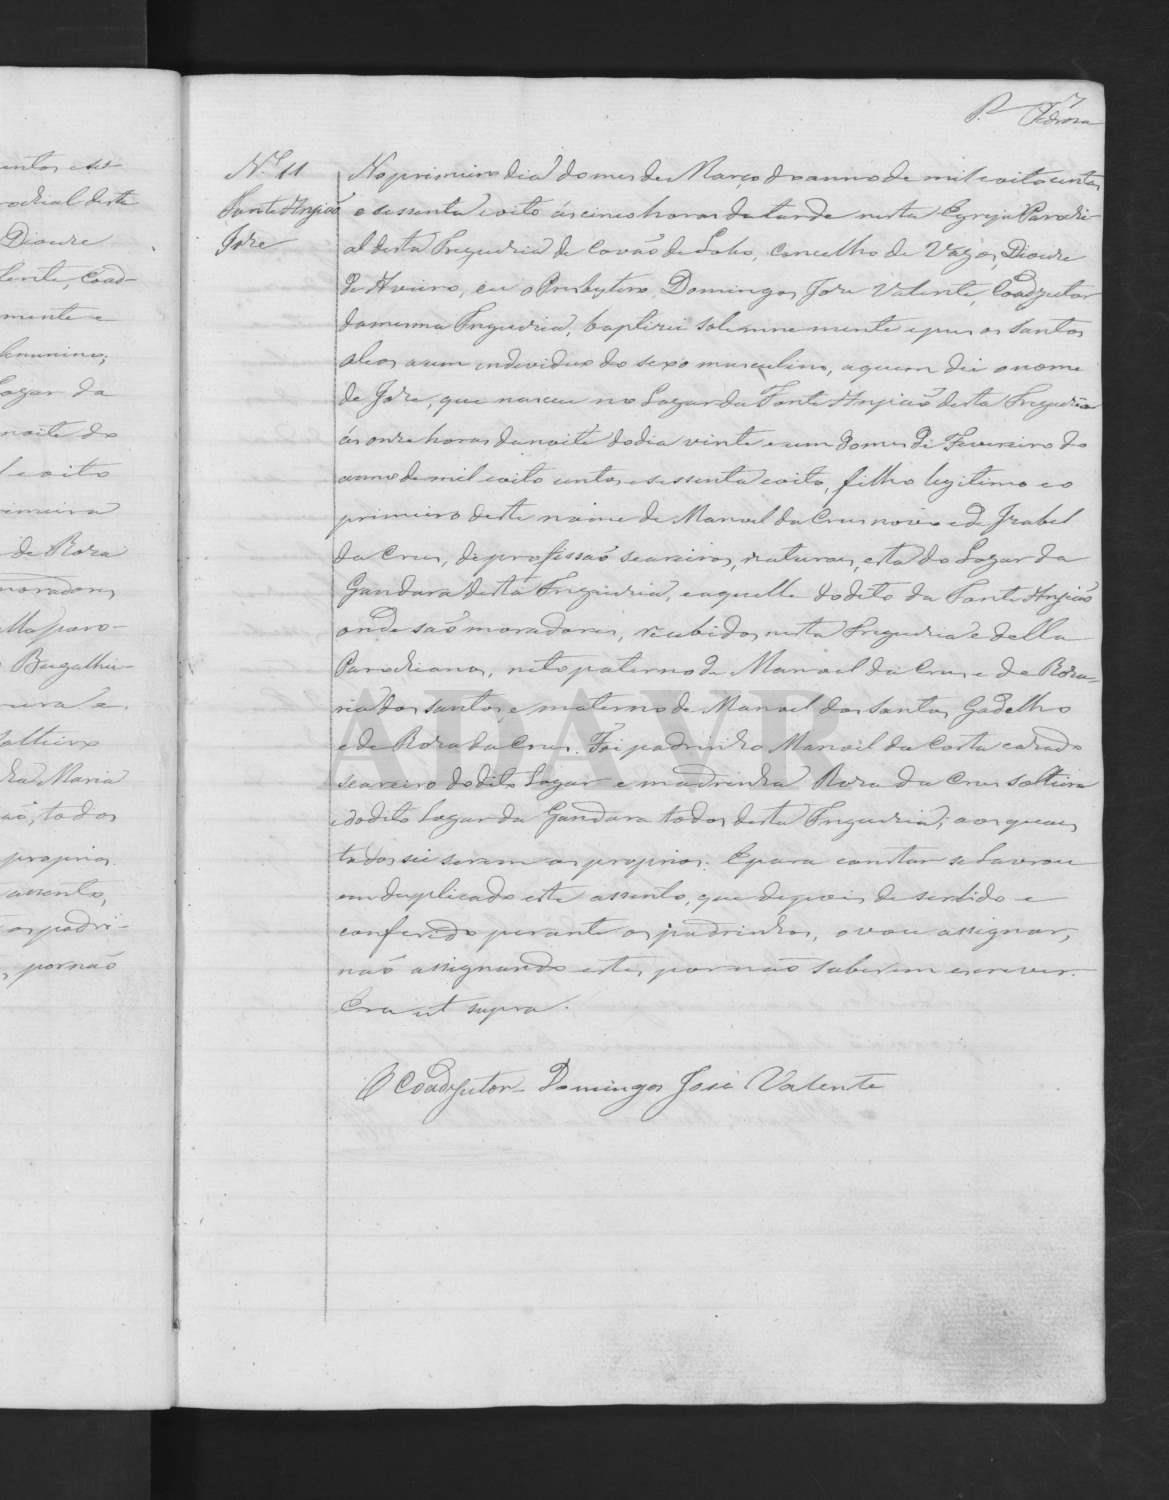 7
P. Pedrosa
entos e se-
rochial desta
Diocese
lente, Coad-
mente e
femenino,
Logar da
noite do
e oito
rimeira
de Roza
moradores
ello paro-
solteiro
Maria
ão, todos
proprios
assento,
os padri-
, por não
N.º 11
Fonte Angião
Joze
No primeiro dia do mes de Março do anno de mil e oito centos
e sessenta e oito ás cinco horas da tarde nesta Egreja Parochi-
al desta Freguezia de Covão de Lobo, Concelho de Vagos, Diocese
de Aveiro, eu o Presbytero Domingos Joze Valente, Coadjutor
da mesma Freguezia, baptizei solemne mente e pus os santos
oleos a um individuo do sexo masculino, a quem dei o nome
de Joze, que nasceu no Logar da Fonte Angião desta Freguezia
ás onze horas da noite do dia vinte e um do mes de Fevereiro do
anno de mil e oito centos e sessenta e oito, filho legitimo e o
primeiro deste nome de Manoel da Crus novo e de Izabel
da Crus, de profissaõ seareiros, naturaes, esta do Logar da
Gandara desta Freguezia, e aquelle do dito da Fonte Angião
onde saõ moradores, recebidos nesta Freguezia e della
Parochianos, neto paterno de Manoel da Crus e de Roza-
ria dos Santos, e materno de Manoel dos Santos Gadelho
e de Roza da Crus. Foi padrinho Manoel da Costa cazado
seareiro do dito Logar e madrinha Roza da Crus solteira
e do dito Logar da Gandara todos desta Freguezia, aos quaes
todos sei serem os proprios. E para constar se lavrou
em duplicado este assento, que depois de ser lido e
conferido perante os padrinhos, o vou assignar,
naõ assignando estes por naõ saberem escrever.
Era ut supra.
O Coadjutor Domingos José Valente
ADAVR